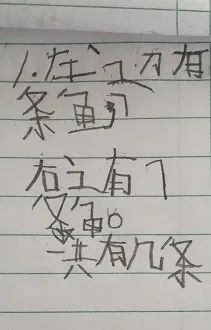 1.左边有
条鱼
右 有1
条鱼。
一共有几条